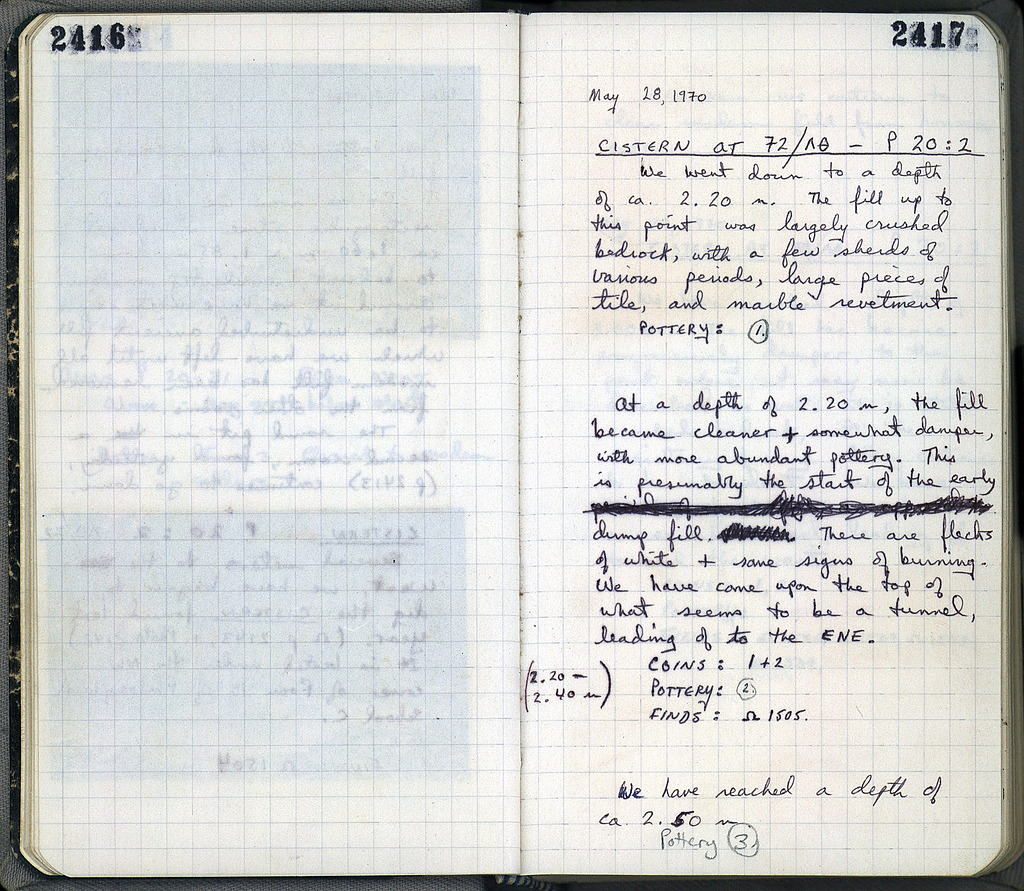 2416
2417
May 28, 1970
CISTERN AT 72/ΛΘ — P 20:2
We went down to a depth
of ca. 2.20 m. The fill up to
this point was largely crushed
bedrock, with a few sherds of
various periods, large pieces of
tile, and marble revetment.
POTTERY: 1.
At a depth of 2.20 m, the fill
became cleaner + somewhat damper,
with more abundant pottery. This
is presumably the start of the early
dump fill. There are flecks
of white + some signs of burning.
We have come upon the top of
what seems to be a tunnel,
leading off to the ENE.
COINS: 1+2
(2.20 –
2.40 m)
POTTERY: 2.
FINDS: Ω 1505.
We have reached a depth of
ca. 2.50 m
Pottery 3.